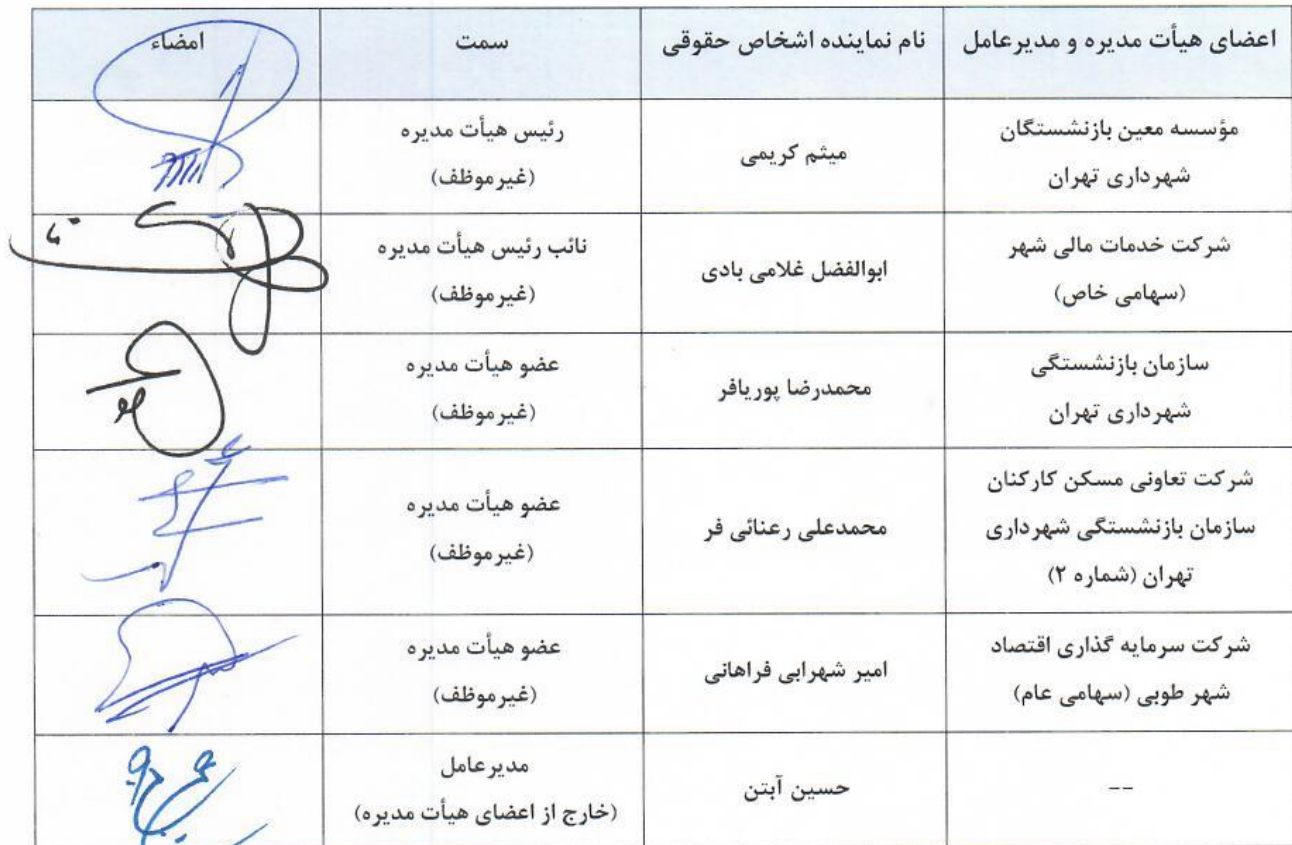 اعضای هیأت مدیره و مدیرعامل	نام نماینده اشخاص حقوقی	سمت	امضاء
مؤسسه معین بازنشستگان
شهرداری تهران
میثم کریمی
رئیس هیأت مدیره
(غیرموظف)
شرکت خدمات مالی شهر
(سهامی خاص)
ابوالفضل غلامی بادی
نائب رئیس هیأت مدیره
(غیرموظف)
سازمان بازنشستگی
شهرداری تهران
محمدرضا پوریافر
عضو هیأت مدیره
(غیرموظف)
شرکت تعاونی مسکن کارکنان
سازمان بازنشستگی شهرداری
تهران (شماره ۲)
محمدعلی رعنائی فر
عضو هیأت مدیره
(غیرموظف)
شرکت سرمایه گذاری اقتصاد
شهر طوبی (سهامی عام)
امیر شهرابی فراهانی
عضو هیأت مدیره
(غیرموظف)
--
حسین آبتن
مدیرعامل
(خارج از اعضای هیأت مدیره)